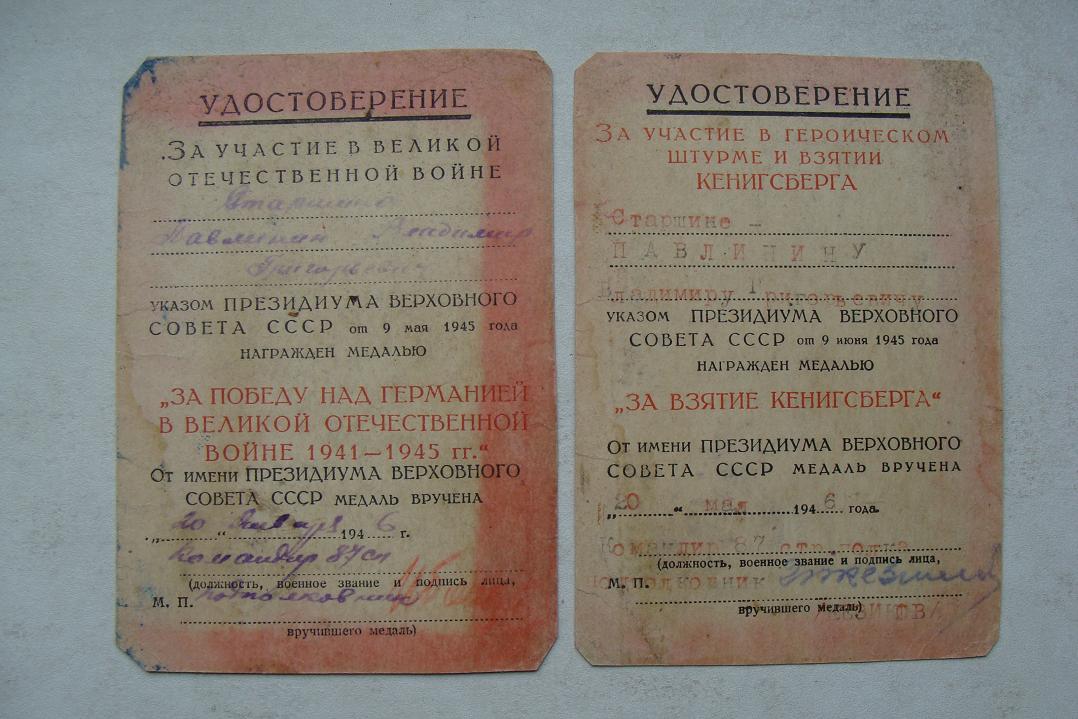 УДОСТОВЕРЕНИЕ
ЗА УЧАСТИЕ В ВЕЛИКОЙ
ОТЕЧЕСТВЕННОЙ ВОЙНЕ
Старшина
Павлинин Владимир
Григорьевич
УКАЗОМ ПРЕЗИДИУМА ВЕРХОВНОГО
СОВЕТА СССР от 9 мая 1945 года
НАГРАЖДЕН МЕДАЛЬЮ
„ЗА ПОБЕДУ НАД ГЕРМАНИЕЙ
В ВЕЛИКОЙ ОТЕЧЕСТВЕННОЙ
ВОЙНЕ 1941—1945 гг.“
ОТ ИМЕНИ ПРЕЗИДИУМА ВЕРХОВНОГО
СОВЕТА СССР МЕДАЛЬ ВРУЧЕНА
„20“ Января 1946 г.
Командир 87 сп
(должность, военное звание и подпись лица,
М. П. подполковник
вручившего медаль)
УДОСТОВЕРЕНИЕ
ЗА УЧАСТИЕ В ГЕРОИЧЕСКОМ
ШТУРМЕ И ВЗЯТИИ
КЕНИГСБЕРГА
Старшине -
ПАВЛИНИНУ
Владимиру Григорьевичу
УКАЗОМ ПРЕЗИДИУМА ВЕРХОВНОГО
СОВЕТА СССР от 9 июня 1945 года
НАГРАЖДЕН МЕДАЛЬЮ
„ЗА ВЗЯТИЕ КЕНИГСБЕРГА“
ОТ ИМЕНИ ПРЕЗИДИУМА ВЕРХОВНОГО
СОВЕТА СССР МЕДАЛЬ ВРУЧЕНА
„20“ мая 1946 года.
Командир 87 стр.полка
(должность, военное звание и подпись лица,
М. П. подполковник
вручившего медаль)